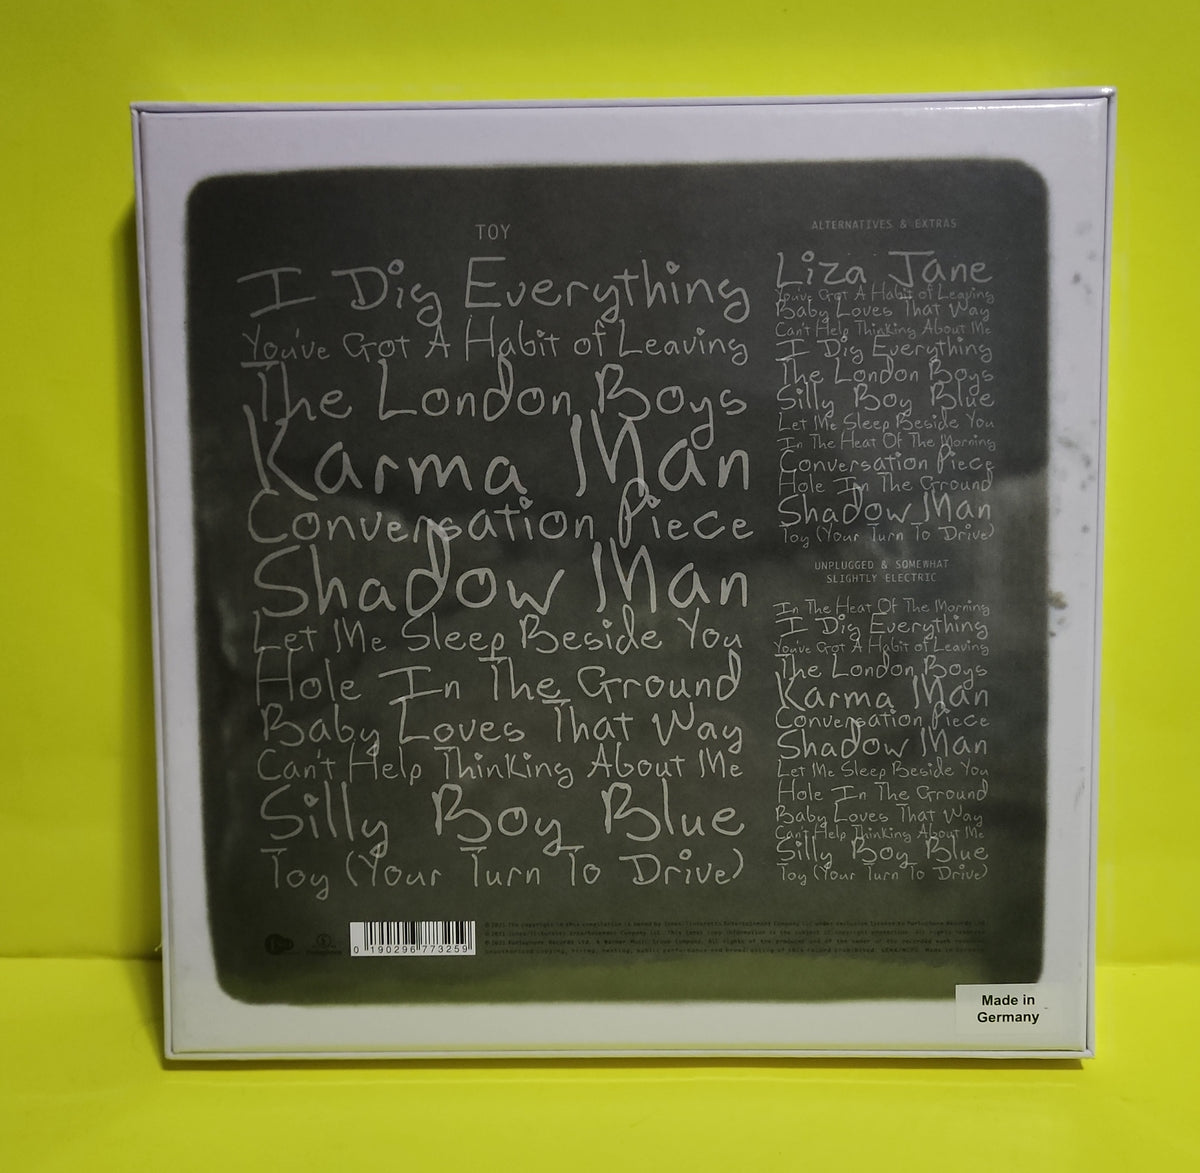 TOY
I Dig Everything
You've Got A Habit of Leaving
The London Boys
Karma Man
Conversation Piece
Shadow Man
Let Me Sleep Beside You
Hole In The Ground
Baby Loves That Way
Can't Help Thinking About Me
Silly Boy Blue
Toy (Your Turn To Drive)
ALTERNATIVES & EXTRAS
Liza Jane
You've Got A Habit of Leaving
Baby Loves That Way
Can't Help Thinking About Me
I Dig Everything
The London Boys
Silly Boy Blue
Let Me Sleep Beside You
In The Heat Of The Morning
Conversation Piece
Hole In The Ground
Shadow Man
Toy (Your Turn To Drive)
UNPLUGGED & SOMEWHAT
SLIGHTLY ELECTRIC
In The Heat Of The Morning
I Dig Everything
You've Got A Habit of Leaving
The London Boys
Karma Man
Conversation Piece
Shadow Man
Let Me Sleep Beside You
Hole In The Ground
Baby Loves That Way
Can't Help Thinking About Me
Silly Boy Blue
Toy (Your Turn To Drive)
0 190296 773259
Made in
Germany